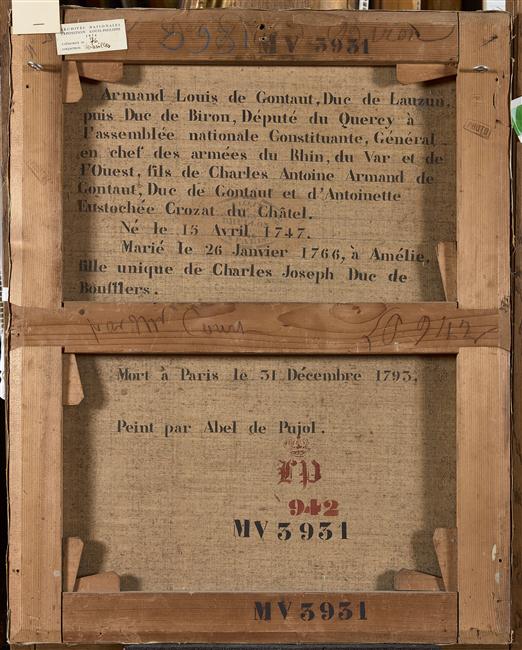 ARCHIVES NATIONALES
EXPOSITION LOUIS-PHILIPPE
1974
76
Versailles
3931 MV 3931 Biron
Armand Louis de Gontaut, Duc de Lauzun,
puis Duc de Biron, Député du Quercy à
l'assemblée nationale Constituante, Général
en chef des armées du Rhin, du Var et de
l'Ouest, fils de Charles Antoine Armand de
Gontaut, Duc de Gontaut et d'Antoinette
Eustochée Crozat du Châtel.
Né le 15 Avril 1747.
Marié le 26 Janvier 1766, à Amélie,
fille unique de Charles Joseph Duc de
Boufflers.
PHOTO
par Mr Court
942
Mort à Paris le 31 Décembre 1793.
Peint par Abel de Pujol.
LP
942
MV 3931
MV 3931